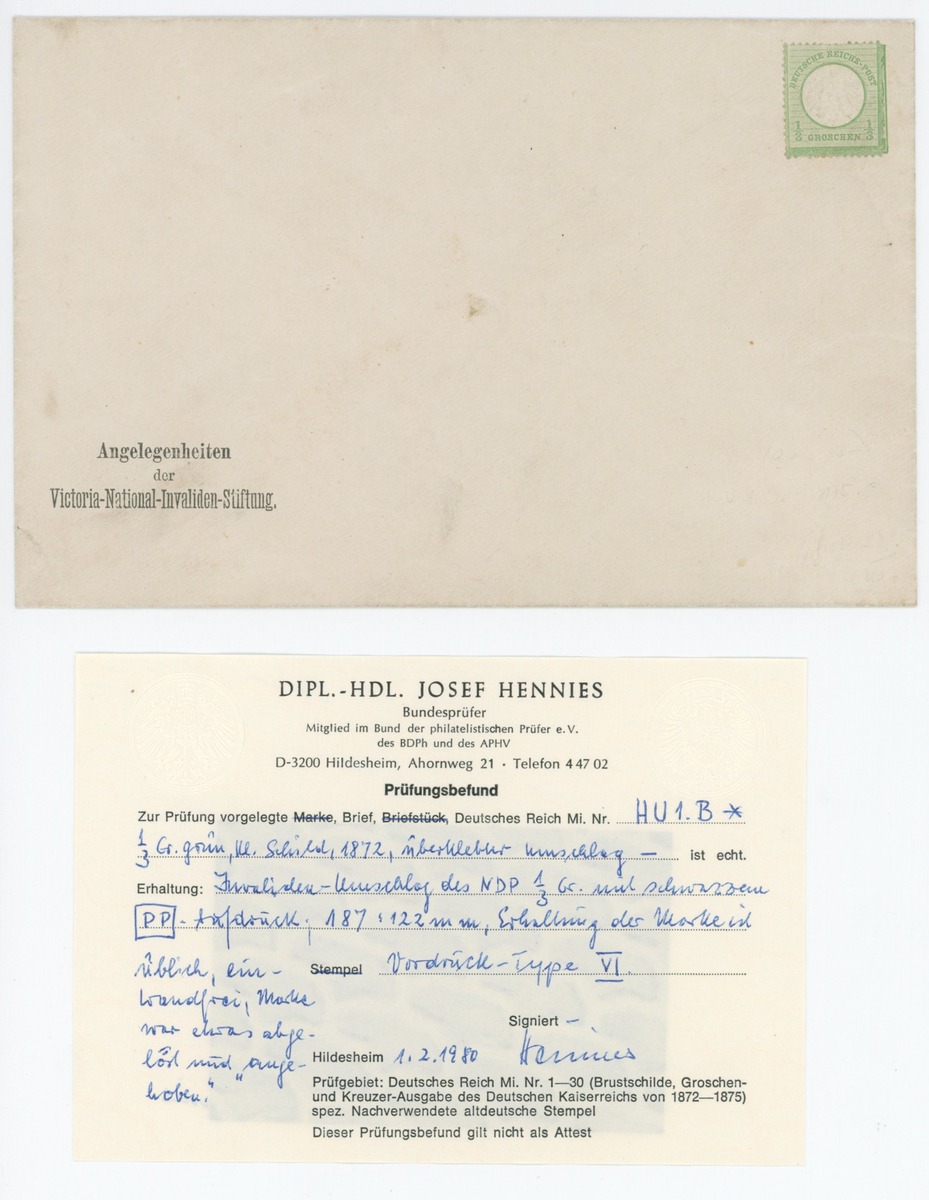 DEUTSCHE REICHS-POST
1/3 GROSCHEN 1/3
Angelegenheiten
der
Victoria-National-Invaliden-Stiftung.
DIPL.-HDL. JOSEF HENNIES
Bundesprüfer
Mitglied im Bund der philatelistischen Prüfer e.V.
des BDPh und des APHV
D-3200 Hildesheim, Ahornweg 21 · Telefon 4 47 02
Prüfungsbefund
Zur Prüfung vorgelegte Marke, Brief, Briefstück, Deutsches Reich Mi. Nr. HU1.B *
1/3 Gr. grün, kl. Schild, 1872, überklebter Umschlag — ist echt.
Erhaltung: Invaliden-Umschlag des NDP 1/3 Gr. mit schwarzem
PP - Aufdruck, 187 : 122 mm, Erhaltung der Marke ist
üblich, ein- Stempel Vordruck-Type VI.
wandfrei, Marke
Signiert –
war etwas abge-
löst und "ange-
hoben."
Hildesheim 1.2.1980 Hennies
Prüfgebiet: Deutsches Reich Mi. Nr. 1—30 (Brustschilde, Groschen-
und Kreuzer-Ausgabe des Deutschen Kaiserreichs von 1872—1875)
spez. Nachverwendete altdeutsche Stempel
Dieser Prüfungsbefund gilt nicht als Attest